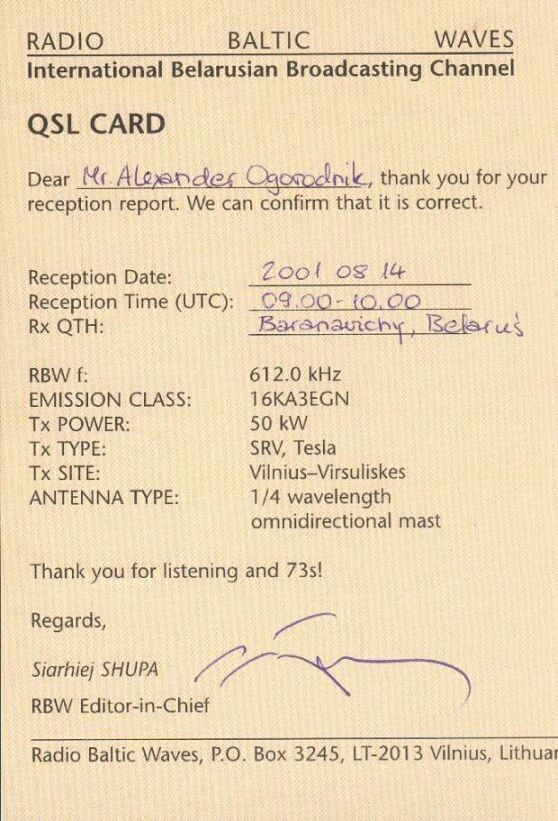 RADIO BALTIC WAVES
International Belarusian Broadcasting Channel
QSL CARD
Dear Mr. Alexander Ogorodnik, thank you for your
reception report. We can confirm that it is correct.
Reception Date: 2001 08 14
Reception Time (UTC): 09.00-10.00
Rx QTH: Baranavichy, Belaruś
RBW f: 612.0 kHz
EMISSION CLASS: 16KA3EGN
Tx POWER: 50 kW
Tx TYPE: SRV, Tesla
Tx SITE: Vilnius–Virsuliskes
ANTENNA TYPE: 1/4 wavelength
omnidirectional mast
Thank you for listening and 73s!
Regards,
Siarhiej SHUPA
RBW Editor-in-Chief
Radio Baltic Waves, P.O. Box 3245, LT-2013 Vilnius, Lithuan